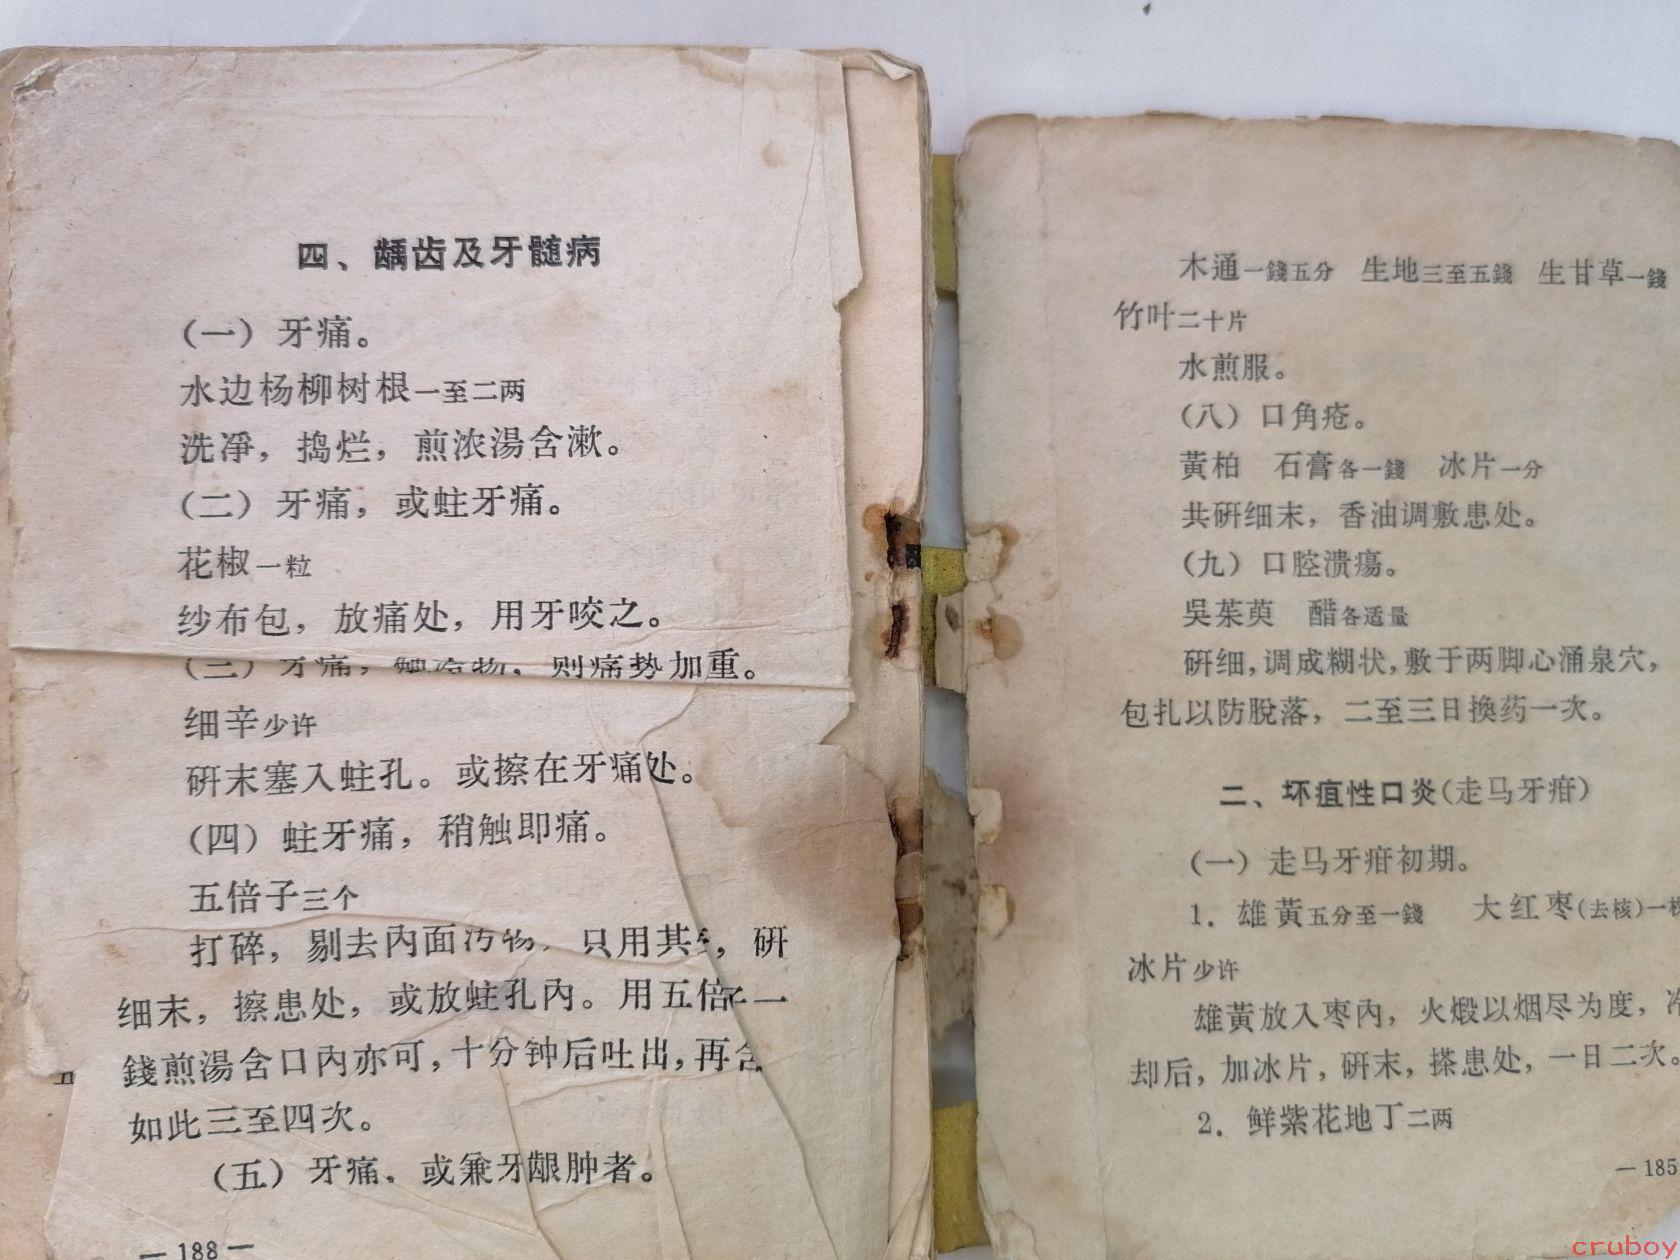 四、龋齿及牙髓病
(一) 牙痛。
水边杨柳树根一至二两
洗淨，捣烂，煎浓湯含漱。
(二) 牙痛，或蛀牙痛。
花椒一粒
纱布包，放痛处，用牙咬之。
(三) 牙痛，触冷物，则痛势加重。
细辛少许
研末塞入蛀孔。或擦在牙痛处。
(四) 蛀牙痛，稍触即痛。
五倍子三个
打碎，剔去內面污物，只用其，研
细末，擦患处，或放蛀孔內。用五倍子一
錢煎湯含口內亦可，十分钟后吐出，再含
如此三至四次。
(五) 牙痛，或兼牙龈肿者。
— 188 —
五
木通一錢五分 生地三至五錢 生甘草一錢
竹叶二十片
水煎服。
(八) 口角疮。
黃柏 石膏各一錢 冰片一分
共研细末，香油调敷患处。
(九) 口腔溃瘍。
吳茱萸 醋各适量
研细，调成糊状，敷于两脚心涌泉穴，
包扎以防脫落，二至三日換药一次。
二、坏疽性口炎(走马牙疳)
(一) 走马牙疳初期。
1. 雄黃五分至一錢 大红枣(去核)一
冰片少许
雄黃放入枣內，火煅以烟尽为度，冷
却后，加冰片，研末，搽患处，一日二次。
2. 鲜紫花地丁二两
— 185
cruboy